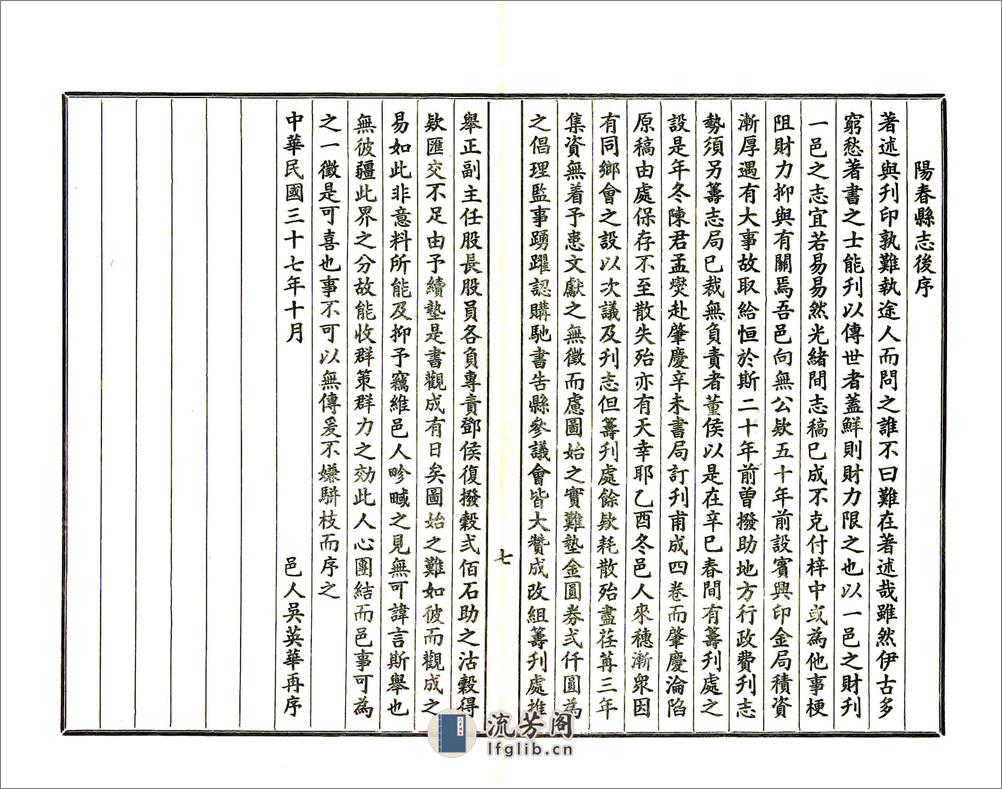 陽春縣志後序
著述與刊印孰難執途人而問之誰不曰難在著述哉雖然伊古多
窮愁著書之士能刊以傳世者蓋鮮則財力限之也以一邑之財刊
一邑之志宜若易易然光緒間志稿已成不克付梓中或為他事梗
阻財力抑與有關焉吾邑向無公欵五十年前設賓興印金局積資
漸厚遇有大事故取給恒於斯二十年前曾撥助地方行政費刊志
勢須另籌志局已裁無負責者董侯以是在辛巳春間有籌刊處之
設是年冬陳君孟爕赴肇慶辛未書局訂刊甫成四卷而肇慶淪陷
原稿由處保存不至散失殆亦有天幸耶乙酉冬邑人來穗漸衆因
有同鄉會之設以次議及刊志但籌刊處餘欵耗散殆盡荏苒三年
集資無着予患文獻之無徵而慮圖始之實難墊金圓券弍仟圓為
之倡理監事踴躍認購馳書告縣參議會皆大贊成改組籌刊處推
七
舉正副主任股長股員各負專責鄧侯復撥穀弍佰石助之沽穀得
欵匯交不足由予續墊是書觀成有日矣圖始之難如彼而觀成之
易如此非意料所能及抑予竊維邑人畛域之見無可諱言斯舉也
無彼疆此界之分故能收群策群力之効此人心團結而邑事可為
之一徵是可喜也事不可以無傳爰不嫌駢枝而序之
中華民國三十七年十月 邑人吳英華再序
流芳阁
lfglib.cn